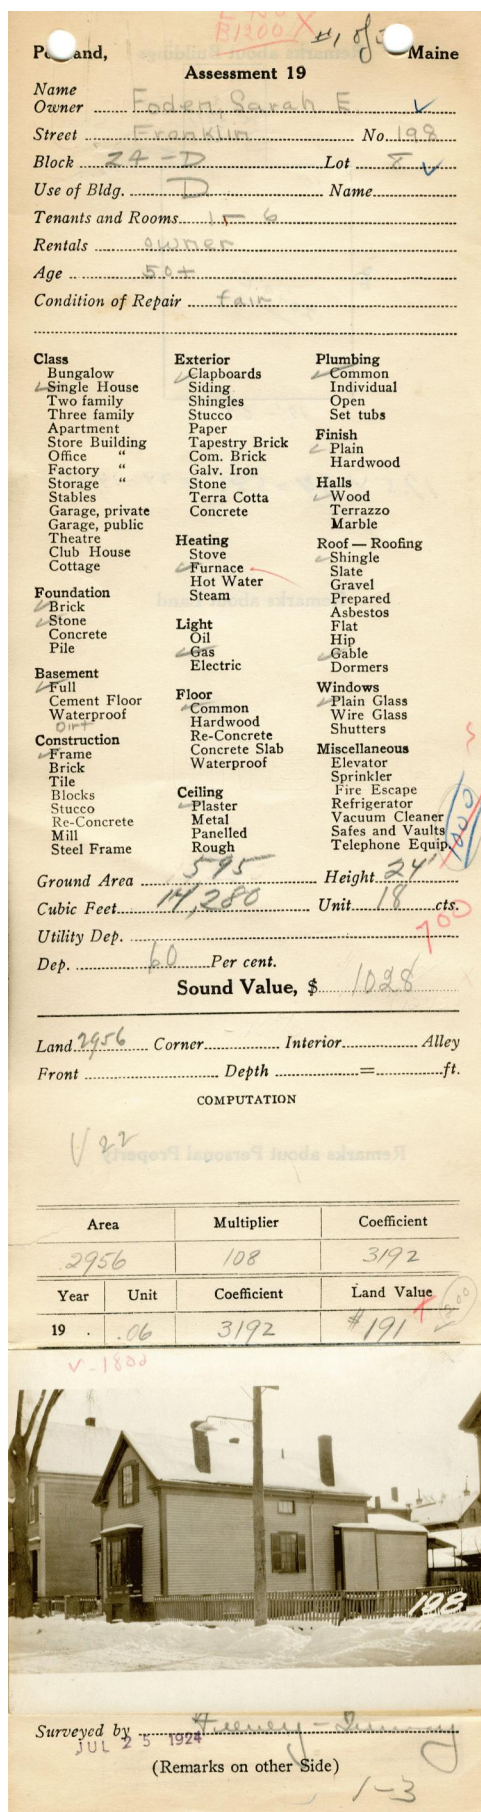 B1200 X
#1 of
Portland, Maine
Assessment 19
Name
Owner Foden, Sarah E
Street Franklin No. 198
Block 24-D Lot 8
Use of Bldg. D Name
Tenants and Rooms 1 - 6
Rentals owner
Age 50+
Condition of Repair fair
Class
Bungalow
Single House
Two family
Three family
Apartment
Store Building
Office "
Factory "
Storage "
Stables
Garage, private
Garage, public
Theatre
Club House
Cottage
Foundation
Brick
Stone
Concrete
Pile
Basement
Full
Cement Floor
Waterproof
Dirt
Construction
Frame
Brick
Tile
Blocks
Stucco
Re-Concrete
Mill
Steel Frame
Exterior
Clapboards
Siding
Shingles
Stucco
Paper
Tapestry Brick
Com. Brick
Galv. Iron
Stone
Terra Cotta
Concrete
Heating
Stove
Furnace
Hot Water
Steam
Light
Oil
Gas
Electric
Floor
Common
Hardwood
Re-Concrete
Concrete Slab
Waterproof
Ceiling
Plaster
Metal
Panelled
Rough
Plumbing
Common
Individual
Open
Set tubs
Finish
Plain
Hardwood
Halls
Wood
Terrazzo
Marble
Roof — Roofing
Shingle
Slate
Gravel
Prepared
Asbestos
Flat
Hip
Gable
Dormers
Windows
Plain Glass
Wire Glass
Shutters
Miscellaneous
Elevator
Sprinkler
Fire Escape
Refrigerator
Vacuum Cleaner
Safes and Vaults
Telephone Equip.
1000
Ground Area 595 Height 24'
Cubic Feet 14,280 Unit 18 cts.
700
Utility Dep.
Dep. 60 Per cent.
Sound Value, $ 1028
Land 2956 Corner Interior Alley
Front Depth = ft.
COMPUTATION
V 22
Area Multiplier Coefficient
2956 108 3192
Year Unit Coefficient Land Value
19 . .06 3192 $191
V-1800
198
Surveyed by Feeney -
JUL 25 1924
(Remarks on other Side)
1-3